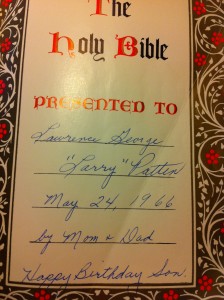 The
Holy Bible
PRESENTED TO
Lawrence George
"Larry" Patten
May 24, 1966
by Mom & Dad
Happy Birthday Son.